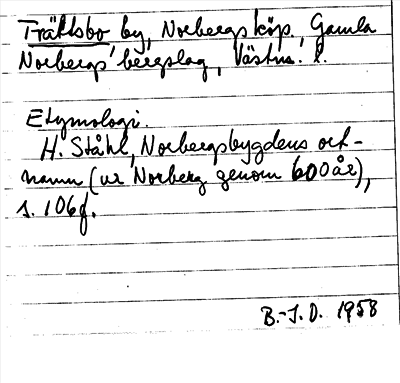 Trättsbo by, Norbergs köp, Gamla
Norbergs bergslag, Västm. l.
Etymologi.
H. Ståhl, Norbergsbygdens ort-
namn (ur Norberg genom 600 år),
s. 106f.
B.-I.D. 1958